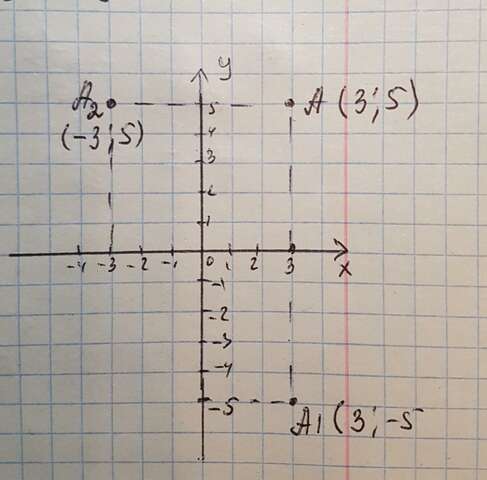 y
A2
A (3; 5)
(-3; 5)
5
4
3
2
1
-4 -3 -2 -1 0 1 2 3 x
-1
-2
-3
-4
-5
A1 (3; -5